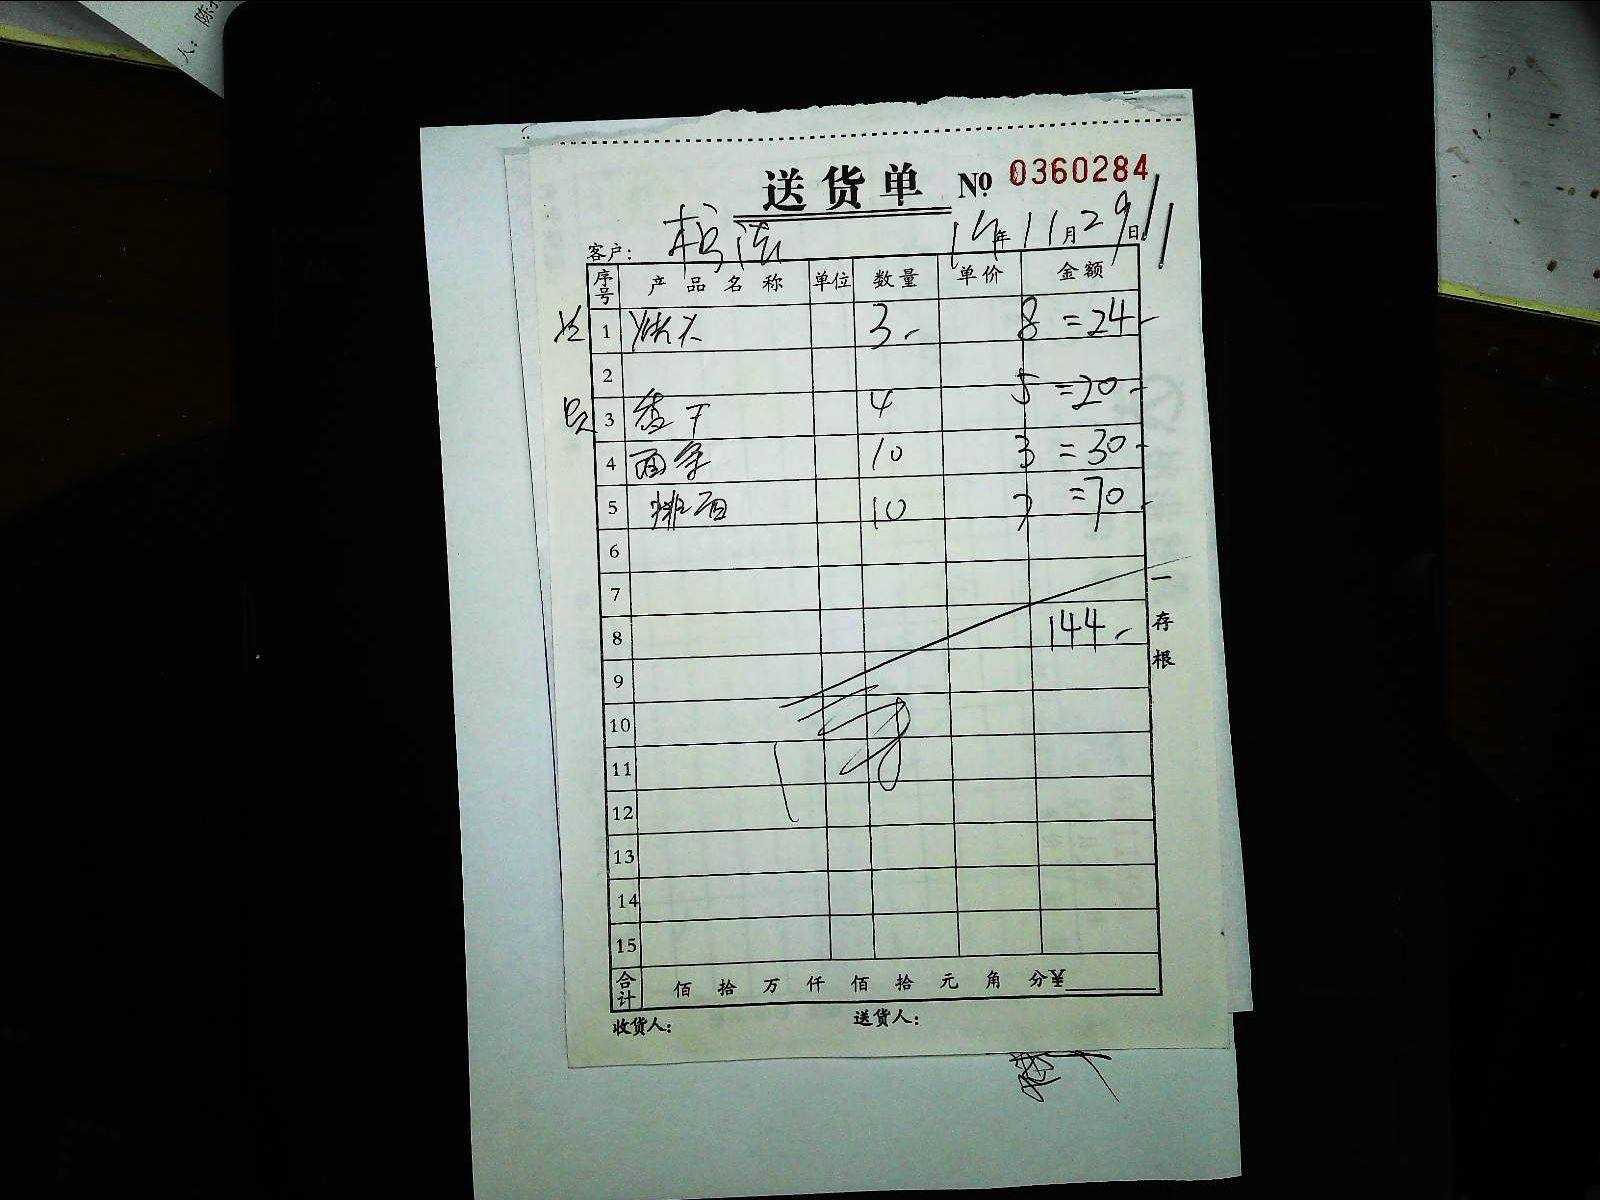 人：陈
送货单 No 0360284
客户： 15年11月29日
序号 产品名称 单位 数量 单价 金额
1 3 8 =24
2
3 香干 4 5 =20
4 面条 10 3 =30
5 排面 10 7 =70
6
7
8 144
9
10
11
12
13
14
15
一存根
合计 佰 拾 万 仟 佰 拾 元 角 分¥
收货人： 送货人：